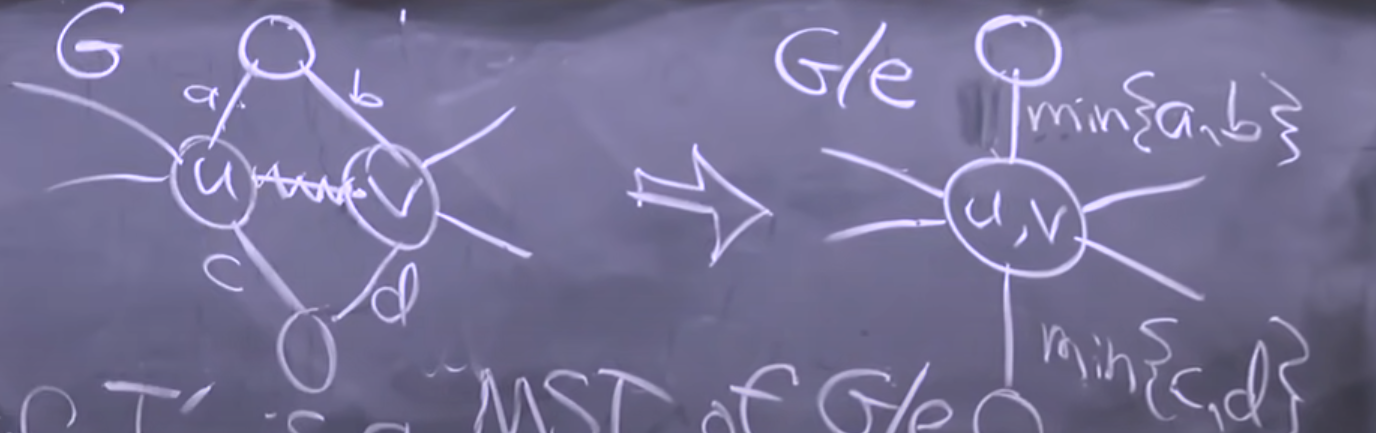 G
a b
u v
c d
G/e
min{a,b}
u,v
min{c,d}
T' is a MST of G/e